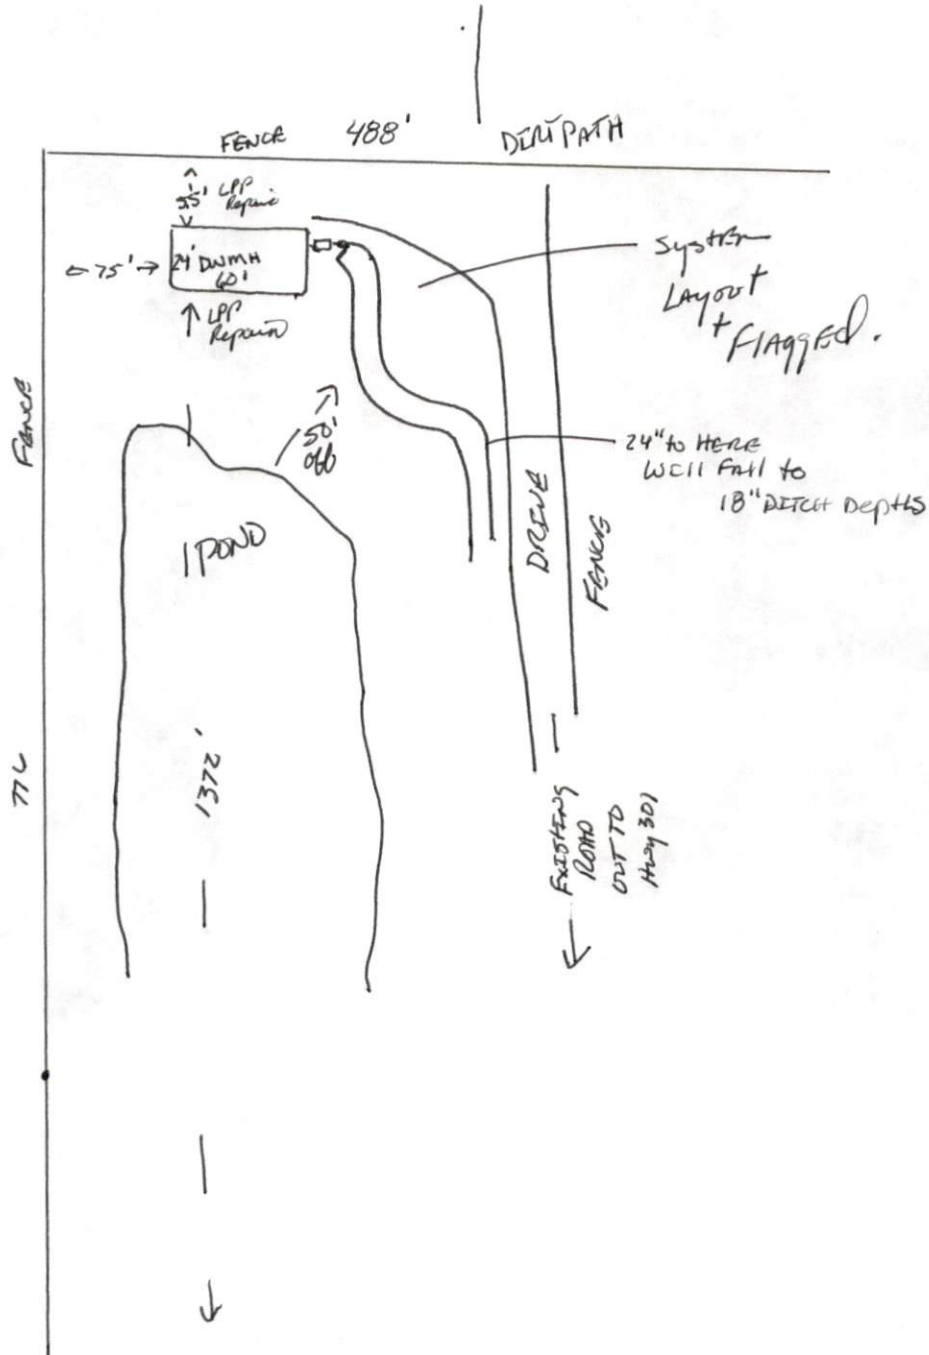 FENCE 488' DIRT PATH
55' LPP
Repair
← 75' →
24' DWMH
60'
LPP
Repair
System
Layout
+ Flagged.
FENCE
50'
off
24" to HERE
Will Fall to
18" DITCH Depths
POND
DRIVE
FENCE
1372'
EXISTING
ROAD
OUT TO
Hwy 301